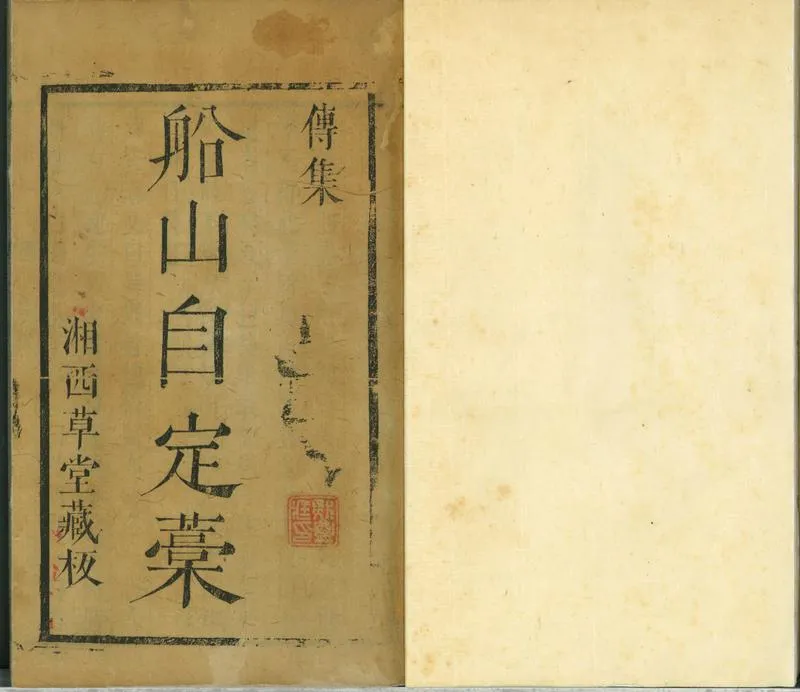 傳集
船山自定藁
湘西草堂藏板